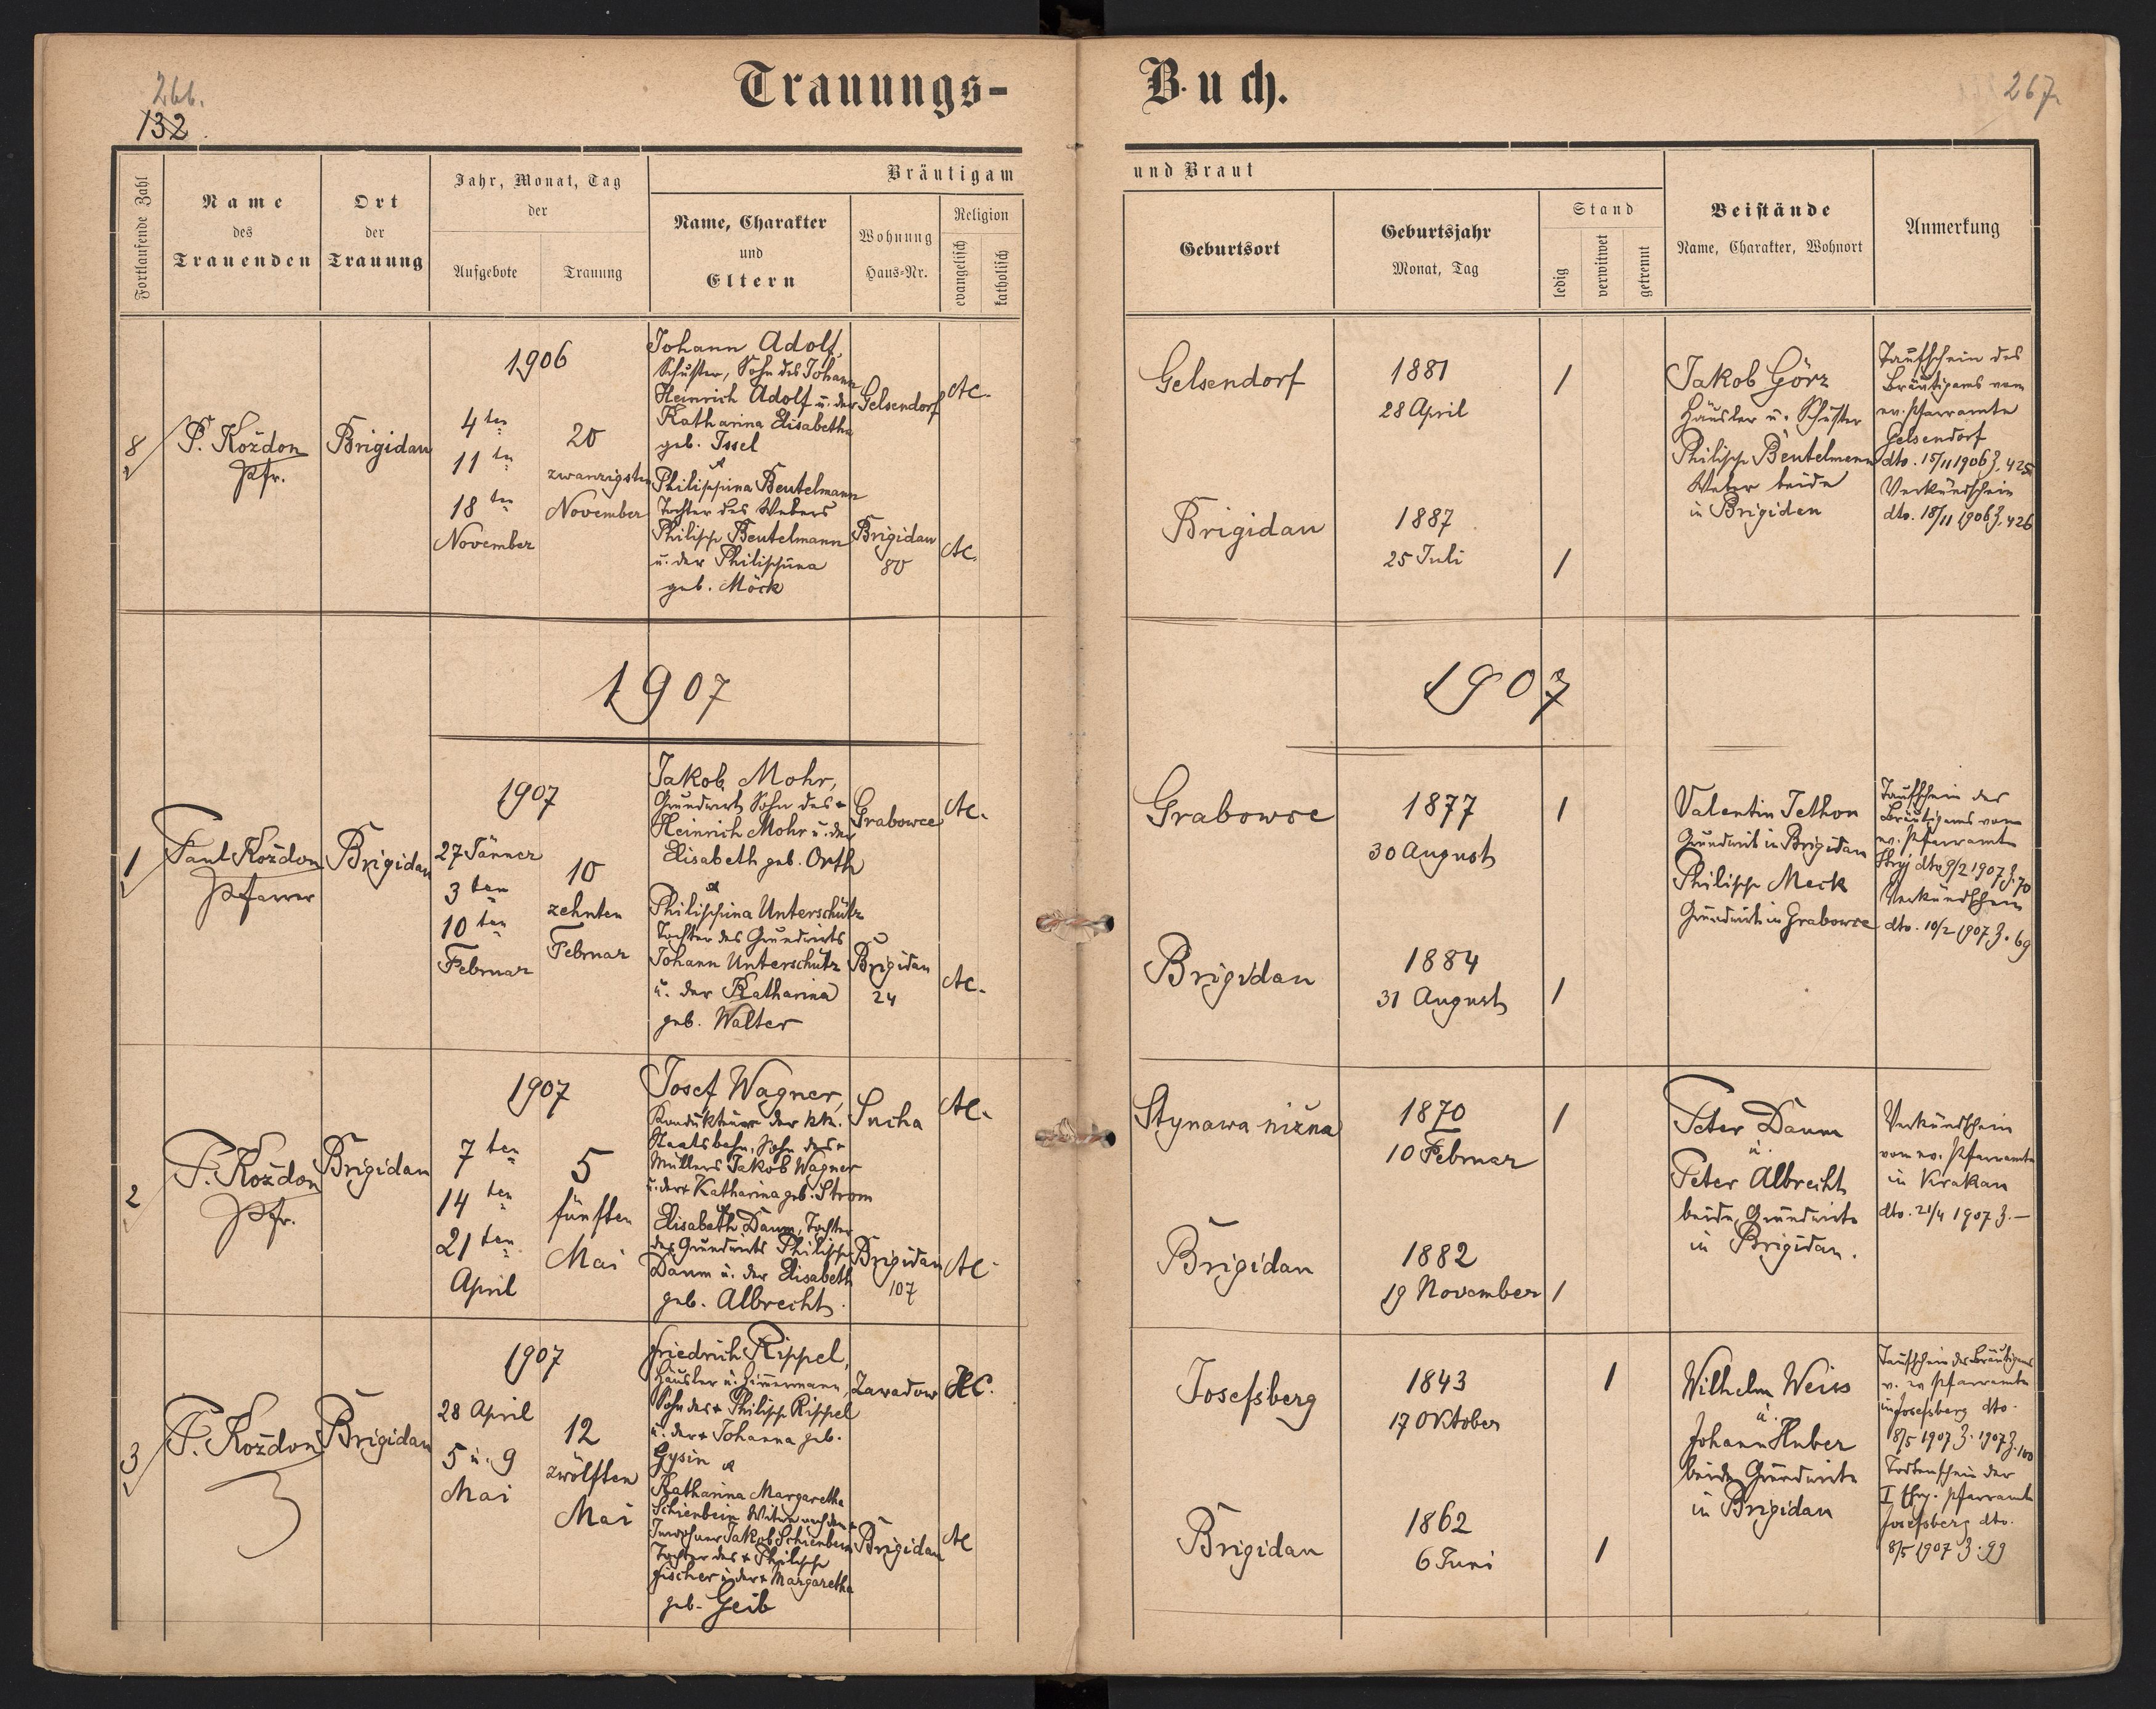 266.
132
Trauungs-
Fortlaufende Zahl
Name
des
Trauenden
Ort
der
Trauung
Jahr, Monat, Tag
der
Aufgebote
Trauung
Bräutigam
Name, Charakter
und
Eltern
Wohnung
Haus-Nr.
Religion
evangelisch
katholisch
8
P. Koždon
Pfr.
Brigidau
1906
4ten
11ten
18ten
November
20
zwanzigsten
November
Johann Adolf,
Schuster, Sohn des Johann
Heinrich Adolf u. der
Katharina Elisabetha
geb. Issel
Gelsendorf
AC.
Philippina Beutelmann
Tochter des Webers
Philipp Beutelmann
u. der Philippina
geb. Möck
Brigidau
80
AC.
1907
1
Paul Koždon
Pfarrer
Brigidau
1907
27 Jänner
3ten
10ten
Februar
10
zehnten
Februar
Jakob Mohr,
Grundwirt, Sohn des +
Heinrich Mohr u. der
Elisabeth geb. Orth
Grabowce
AC.
Philippina Unterschütz
Tochter des Grundwirts
Johann Unterschütz
u. der Katharina
geb. Walter
Brigidau
24
AC.
2
P. Koždon
Pfr.
Brigidau
1907
7ten
14ten
21ten
April
5
fünften
Mai
Josef Wagner,
Kondukteur der kk.
Staatsbahn, Sohn des +
Müllers Jakob Wagner
u. der + Katharina geb. Strom
Sucha
AC.
Elisabeth Daum, Tochter
des Grundwirts Philipp
Daum u. der Elisabeth
geb. Albrecht.
Brigidau
107
AC
3
P. Koždon
Brigidau
1907
28 April
5 u. 9
Mai
12
zwölften
Mai
Friedrich Rippel,
Häusler u. Zimmermann,
Sohn des + Philipp Rippel
u. der + Johanna geb.
Gysin
Zavadow
HC.
Katharina Margaretha
Schienbein Witwe nach dem +
Inwohner Jakob Schienbein
Tochter des + Philipp
Fischer u. der + Margaretha
geb. Geib
Brigidau
AC
Buch.
267
und Braut
Geburtsort
Geburtsjahr
Monat, Tag
Stand
ledig
verwitwet
getrennt
Beistände
Name, Charakter, Wohnort
Anmerkung
Gelsendorf
1881
28 April
1
Brigidau
1887
25 Juli
1
Jakob Görz
Häusler u. Schuster
Philipp Beutelmann
Weber beide
in Brigidau
Taufschein des
Bräutigams vom
ev. Pfarramte
Gelsendorf
dto. 15/11 1906 Z. 425
Verkündschein
dto. 18/11 1906 Z. 426
1907
Grabowce
1877
30 August
1
Brigidau
1884
31 August
1
Valentin Jethon
Grundwirt in Brigidau
Philipp Meck
Grundwirt in Grabowce
Taufschein des
Bräutigams vom
ev. Pfarramte
Stryj dto 9/2 1907 Z. 70
Verkündschein
dto. 10/2 1907 Z. 69
Stynawa nižna
1870
10 Februar
1
Brigidau
1882
19 November
1
Peter Daum
u.
Peter Albrecht
beide Grundwirte
in Brigidau.
Verkündschein
vom ev. Pfarramte
in Krakau
dto. 21/4 1907 Z. —
Josefsberg
1843
17 Oktober
1
Brigidau
1862
6 Juni
1
Wilhelm Weiss
u.
Johann Huber
beide Grundwirte
in Brigidau
Taufschein des Bräutigams
v. ev Pfarramte
in Josefsberg dto.
8/5 1907 Z. 1907 Z. 100
Todtenschein der
Pfarramt
Josefsberg dto.
8/5 1907 Z. 99